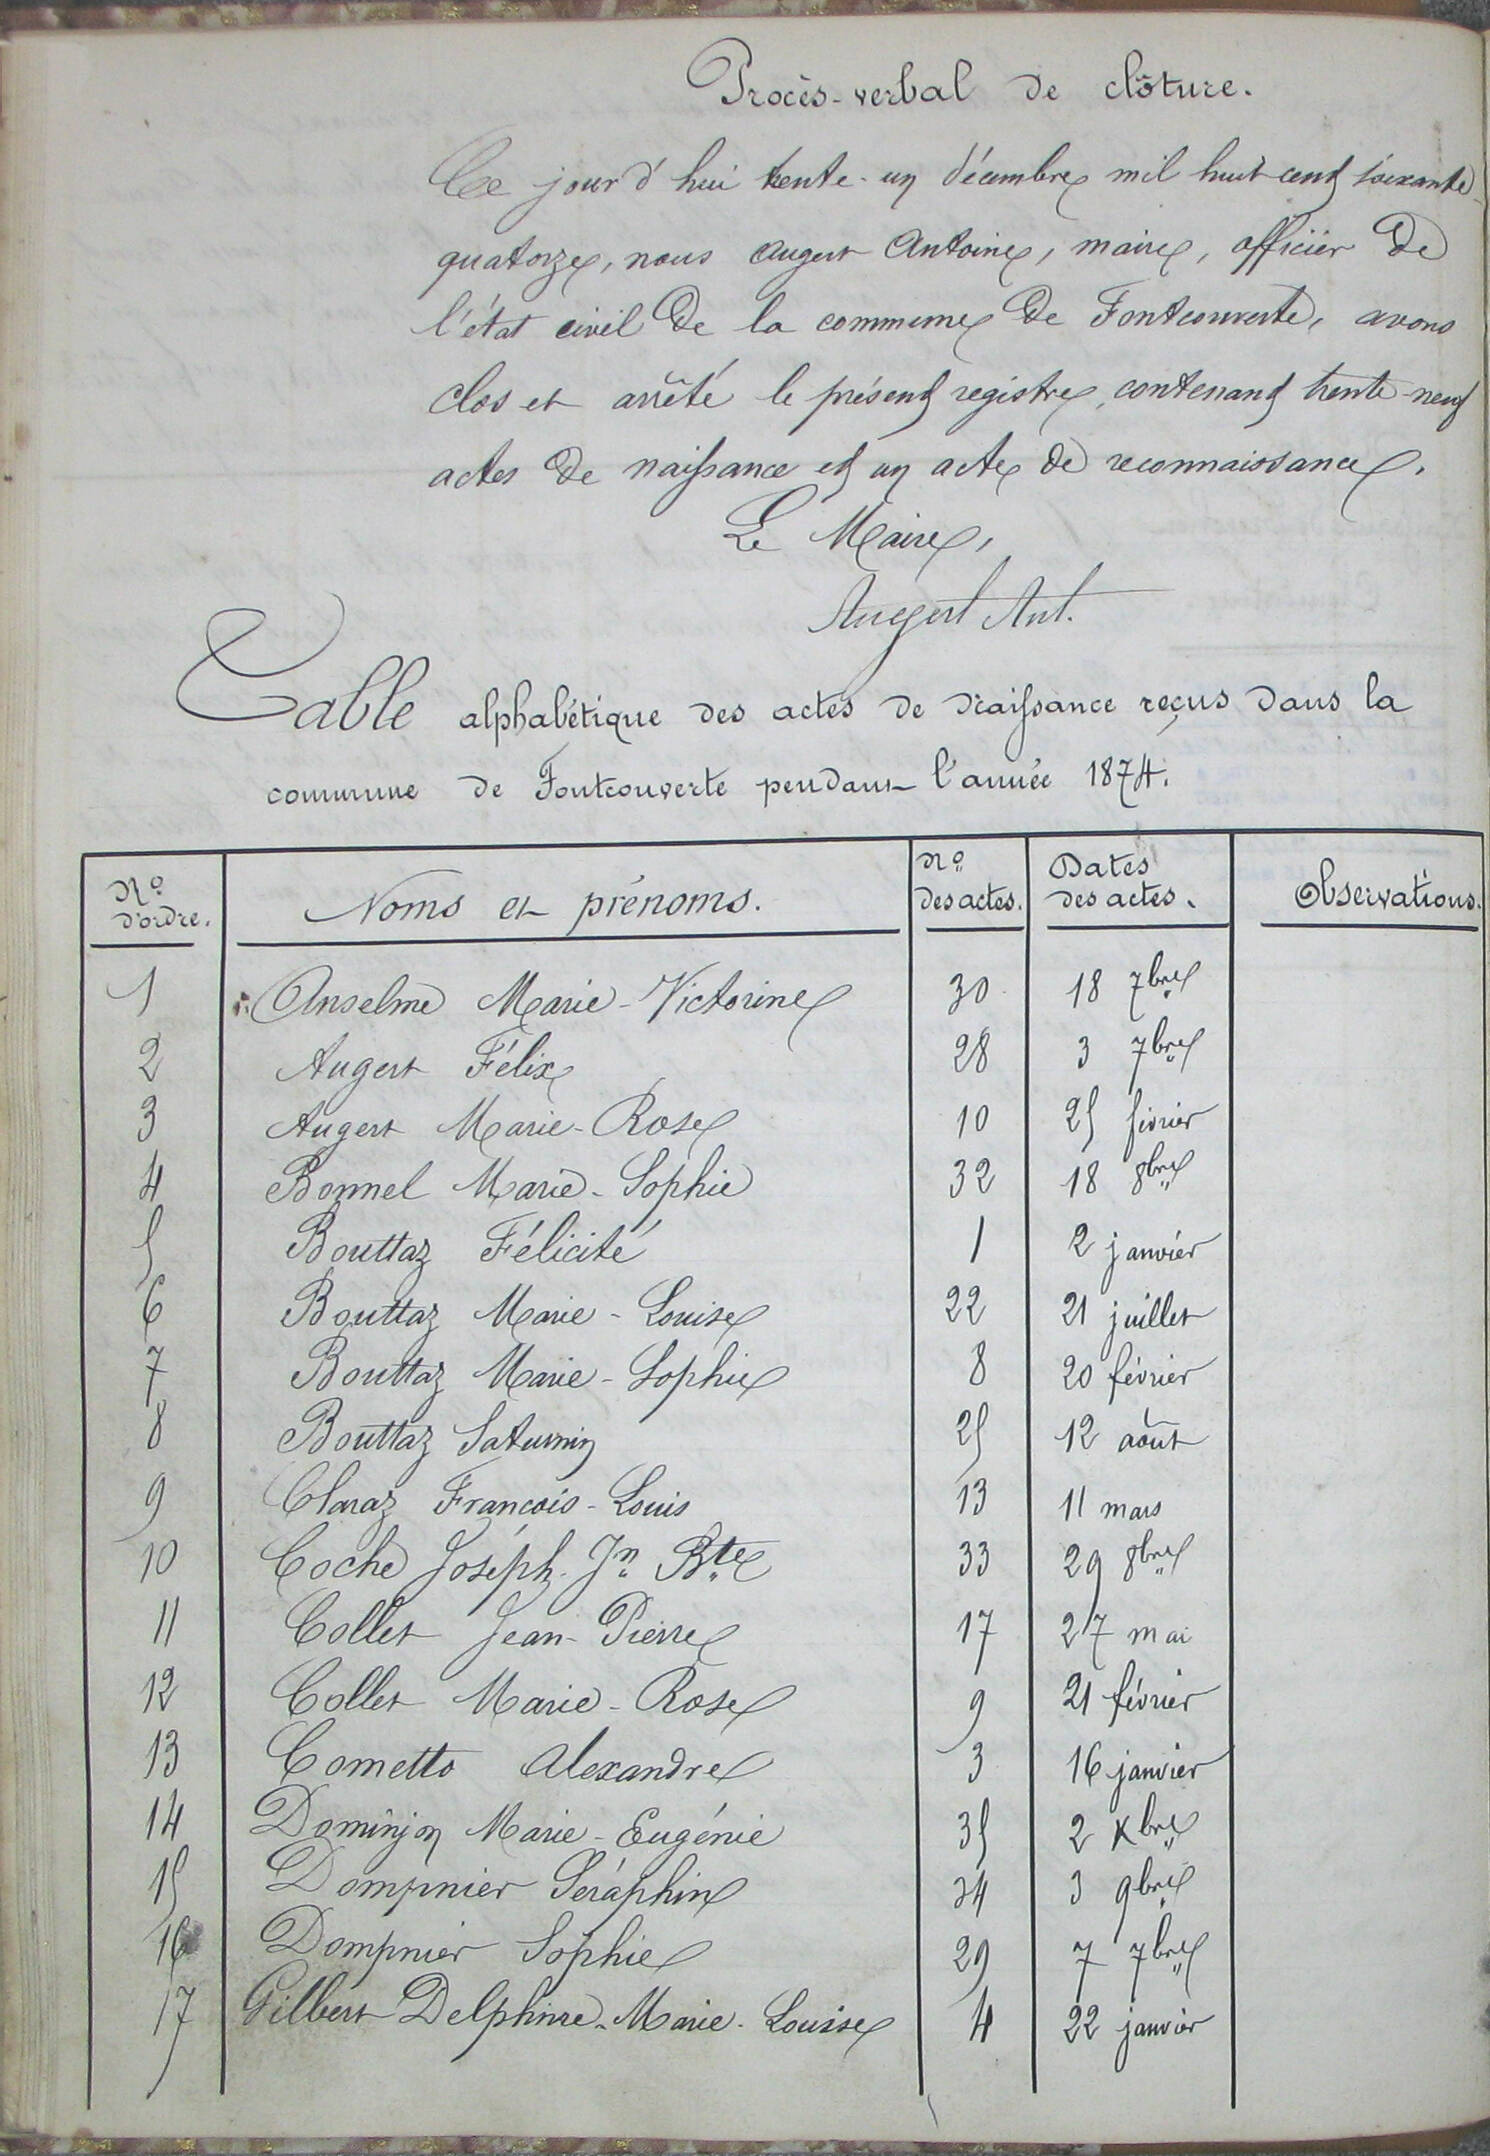 Procès-verbal de clôture.
Ce jour d'hui trente-un décembre mil huit cent soixante-
quatorze, nous Augert Antoine, maire, officier de
l'état civil de la commune de Fontcouverte, avons
clos et arrêté le présent registre, contenant trente-neuf
actes de naissance et un acte de reconnaissance.
Le Maire,
Augert Ant.
Table alphabétique des actes de Naissance reçus dans la
commune de Fontcouverte pendant l'année 1874.
No d'ordre. Noms et prénoms. No des actes. Dates des actes. Observations.
1 Anselme Marie-Victorine 30 18 7bre
2 Augert Félix 28 3 7bre
3 Augert Marie-Rose 10 25 février
4 Bonnel Marie-Sophie 32 18 8bre
5 Bouttaz Félicité 1 2 janvier
6 Bouttaz Marie-Louise 22 21 juillet
7 Bouttaz Marie-Sophie 8 20 février
8 Bouttaz Saturnin 25 12 août
9 Claraz François-Louis 13 11 mars
10 Coche Joseph-Jn Bte 33 29 8bre
11 Collet Jean-Pierre 17 27 mai
12 Collet Marie-Rose 9 21 février
13 Cometto Alexandre 3 16 janvier
14 Dominjon Marie-Eugénie 35 2 Xbre
15 Dompnier Séraphin 34 3 9bre
16 Dompnier Sophie 29 7 7bre
17 Gilbert Delphine-Marie-Louise 4 22 janvier